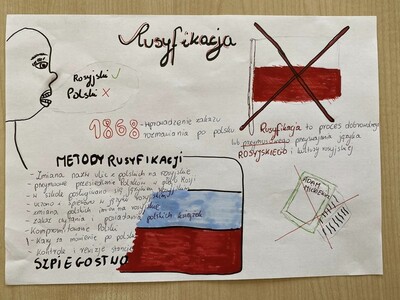 Rusyfikacja
Rosyjski ✓
Polski ✗
1868 - wprowadzenie zakazu
rozmawiania po polsku
Rusyfikacja to proces dobrowolny
lub przymusowego przyswajania języka
ROSYJSKIEGO i kultury rosyjskiej
METODY RUSYFIKACJI
- Zmiana nazw ulic z polskich na rosyjskie
- przymusowe przesiedlenie Polaków w głąb Rosji
- w szkole posługiwano się językiem rosyjskim
- uczono i śpiewano w języku rosyjskim
- zmiana polskich imion na rosyjskie
- zakaz czytania i posiadania polskich książek
- Kompromitowanie Polski
- Kary za mówienie po polsku
- Kontrole i rewizje
SZPIEGOSTWO
ADAM